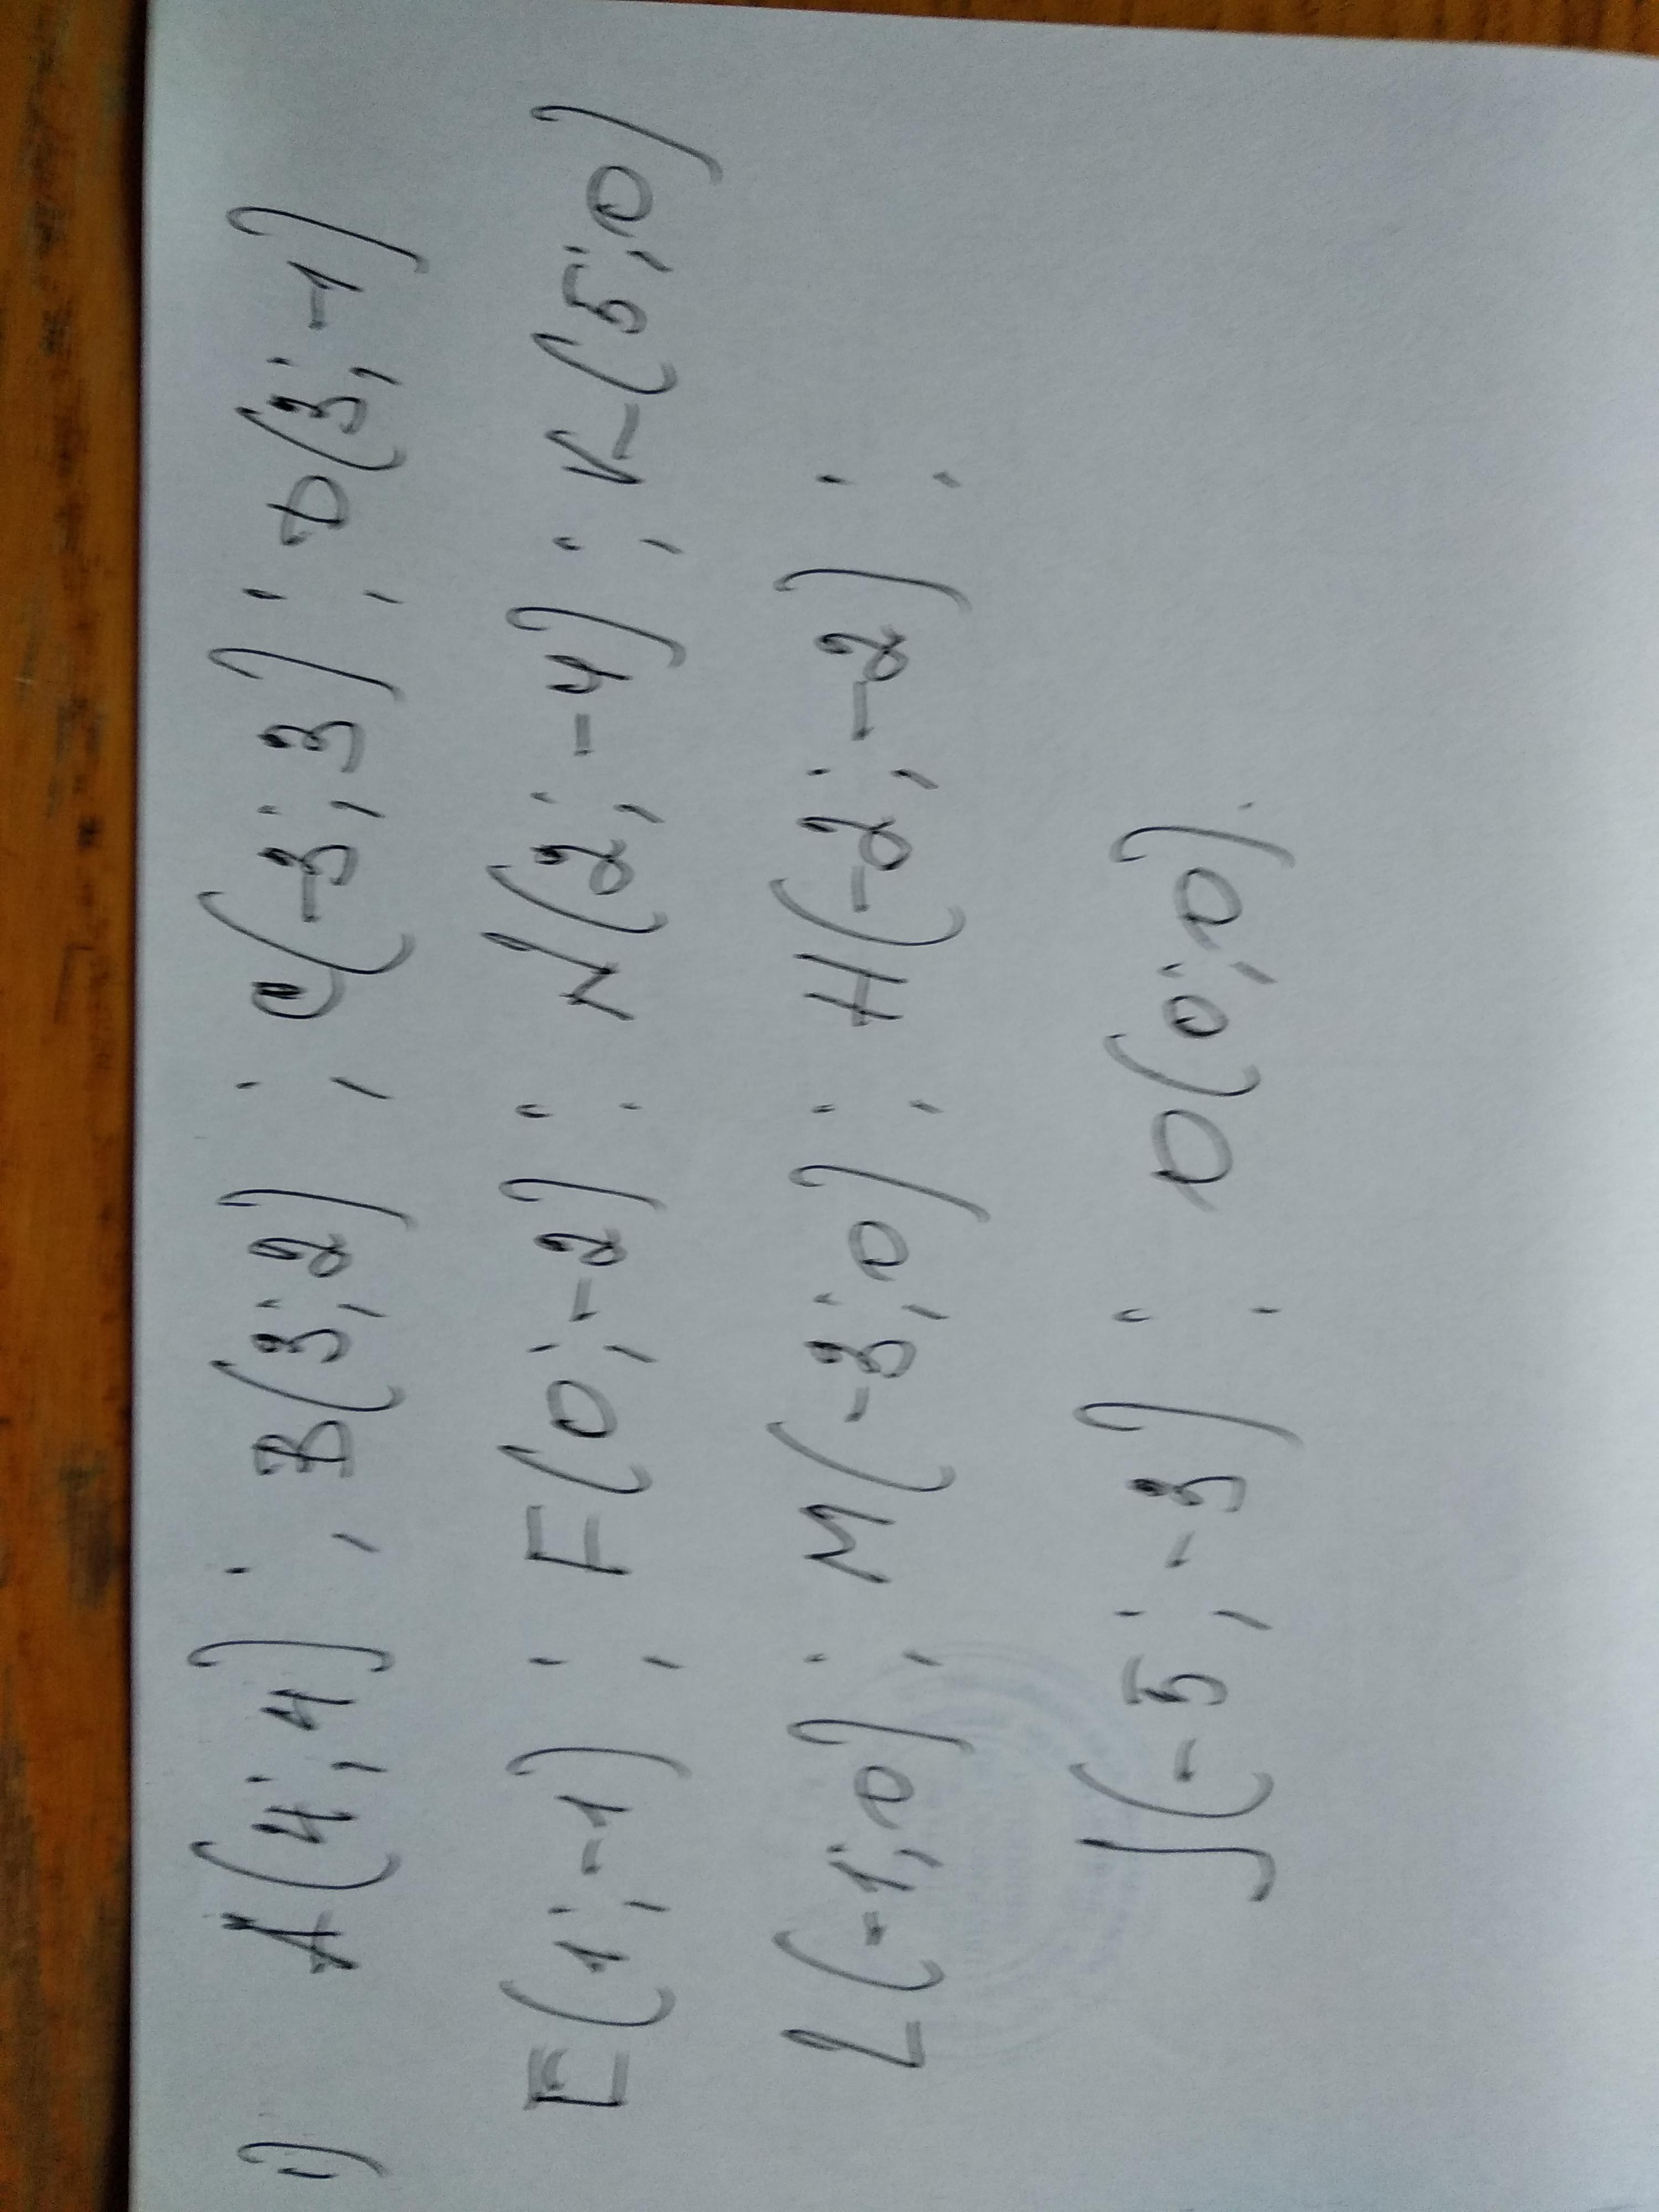 1) A(4;4); B(3;2); C(-3;3); D(3;-1)
E(1;-1); F(0;-2); N(2;-4); K(5;0)
L(-1;0); M(-3;0); H(-2;-2);
J(-5;-3); O(0;0).